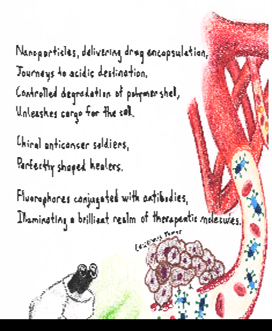 Nanoparticles, delivering drug encapsulation,
Journeys to acidic destination,
Controlled degradation of polymer shell,
Unleashes cargo for the cell.
Chiral anticancer soldiers,
Perfectly shaped healers.
Fluorophores conjugated with antibodies,
Illuminating a brilliant realm of therapeutic molecules.